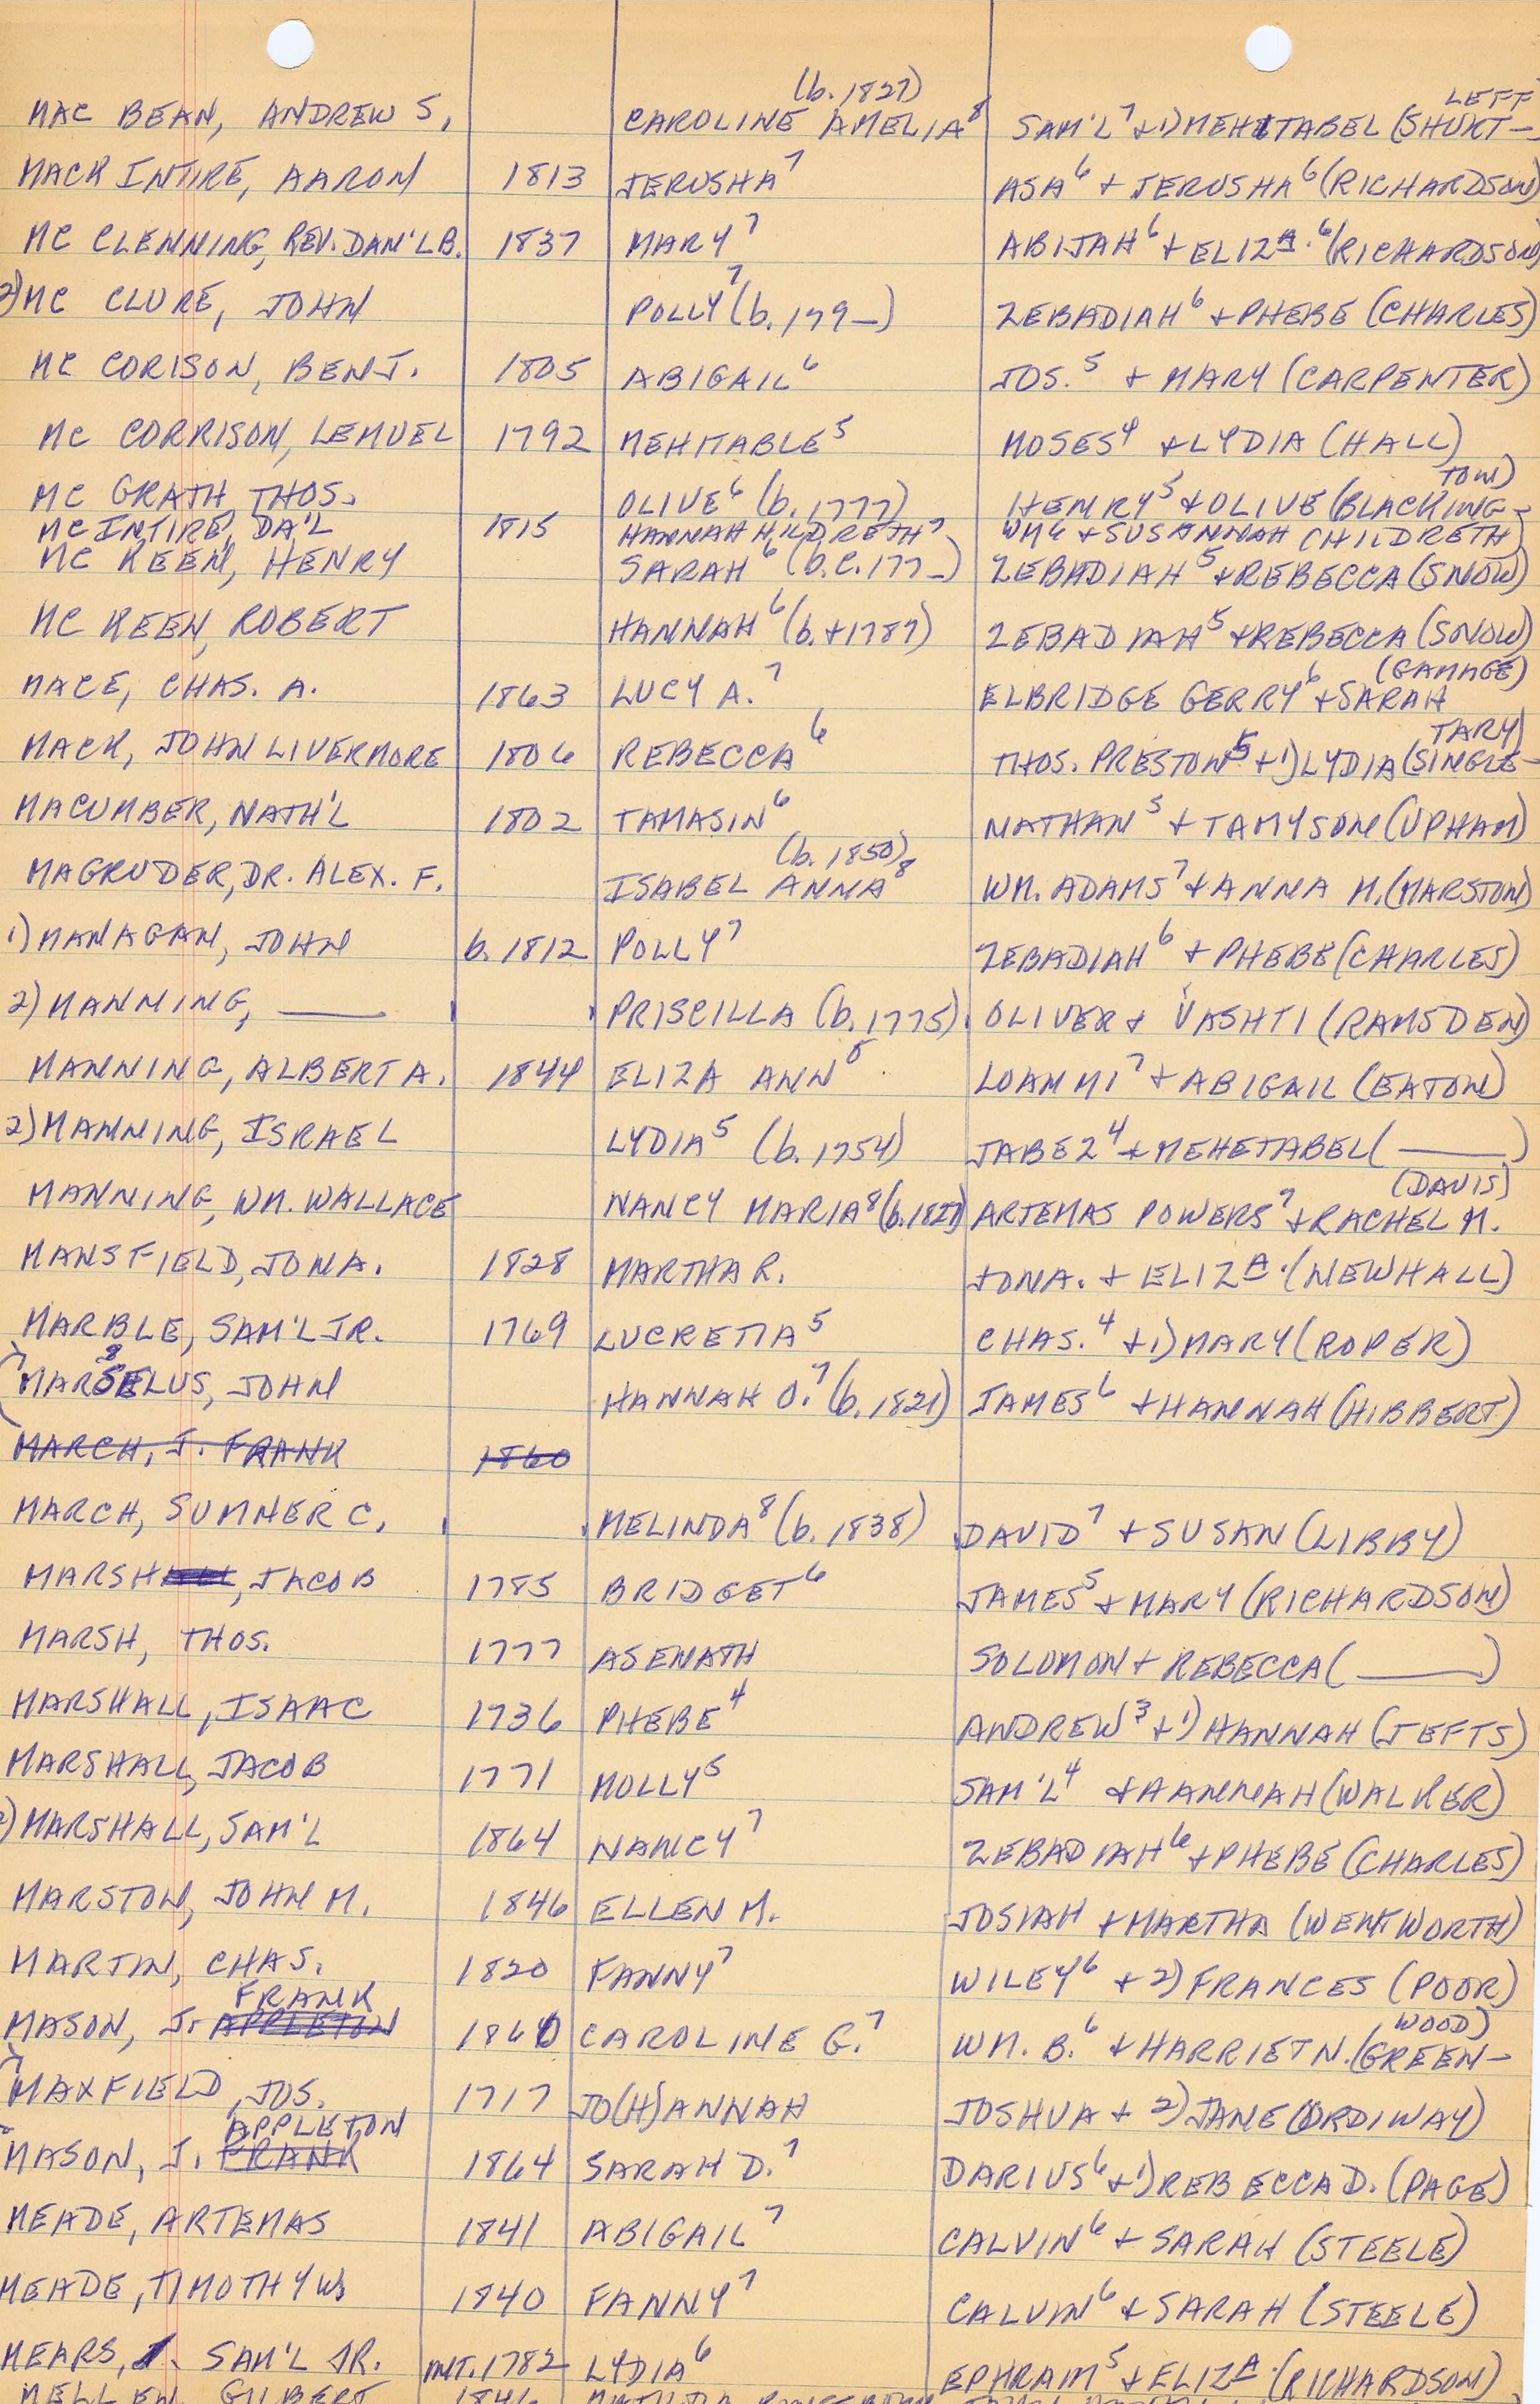 MAC BEAN, ANDREW S, CAROLINE AMELIA⁸ (b. 1827) SAM'L⁷ + 1) MEHITABEL (SHURT-LEFF
MACKINTIRE, AARON 1813 JERUSHA⁷ ASA⁶ + JERUSHA⁶ (RICHARDSON)
MC CLENNING, REV. DAN'L B. 1837 MARY⁷ ABIJAH⁶ + ELIZA.⁶ (RICHARDSON)
2) MC CLURE, JOHN POLLY⁷ (b. 179_) ZEBADIAH⁶ + PHEBE (CHARLES)
MC CORISON, BENJ. 1805 ABIGAIL⁶ JOS.⁵ + MARY (CARPENTER)
MC CORRISON, LEMUEL 1792 MEHITABLE⁵ MOSES⁴ + LYDIA (HALL)
MC GRATH, THOS. OLIVE⁶ (b. 1777) HENRY⁵ + OLIVE (BLACKING-TON)
MC INTIRE, DA'L 1815 HANNAH HILDRETH⁷ WM⁶ + SUSANNAH CHILDRETH)
MC KEEN, HENRY SARAH⁶ (b.c. 177_) ZEBADIAH⁵ + REBECCA (SNOW)
MC KEEN, ROBERT HANNAH⁶ (b. + 1787) ZEBADIAH⁵ + REBECCA (SNOW)
MACE, CHAS. A. 1863 LUCY A.⁷ ELBRIDGE GERRY⁶ + SARAH (GAMAGE)
MACK, JOHN LIVERMORE 1806 REBECCA⁶ THOS. PRESTON⁵ + 1) LYDIA (SINGLE-TARY)
MACUMBER, NATH'L 1802 TAMASIN⁶ NATHAN⁵ + TAMYSON (UPHAM)
MAGRUDER, DR. ALEX. F. ISABEL ANNA⁸ (b. 1850) WM. ADAMS⁷ + ANNA M. (MARSTON)
1) MANAGAN, JOHN b. 1812 POLLY⁷ ZEBADIAH⁶ + PHEBE (CHARLES)
2) MANNING, ____ PRISCILLA (b. 1775) OLIVER + VASHTI (RAMSDEN)
MANNING, ALBERT A. 1844 ELIZA ANN⁸ LOAMMI⁷ + ABIGAIL (EATON)
2) MANNING, ISRAEL LYDIA⁵ (b. 1754) JABEZ⁴ + MEHETABEL (____)
MANNING, WM. WALLACE NANCY MARIA⁸ ARTEMAS POWERS⁷ + RACHEL M. (DAVIS)
MANSFIELD, JONA. 1828 MARTHA R. JONA. + ELIZA. (NEWHALL)
MARBLE, SAM'L JR. 1769 LUCRETIA⁵ CHAS.⁴ + 1) MARY (ROPER)
MARSELUS, JOHN HANNAH O.⁷ (b. 1821) JAMES⁶ + HANNAH (HIBBERT)
MARCH, J. FRANK 1860
MARCH, SUMNER C. MELINDA⁸ (b. 1838) DAVID⁷ + SUSAN (LIBBY)
MARSH, JACOB 1785 BRIDGET⁶ JAMES⁵ + MARY (RICHARDSON)
MARSH, THOS. 1777 ASENATH SOLOMON + REBECCA (____)
MARSHALL, ISAAC 1736 PHEBE⁴ ANDREW³ + 1) HANNAH (JEFTS)
MARSHALL, JACOB 1771 MOLLY⁵ SAM'L⁴ + HANNAH (WALKER)
2) MARSHALL, SAM'L 1864 NANCY⁷ ZEBADIAH⁶ + PHEBE (CHARLES)
MARSTON, JOHN M. 1846 ELLEN M. JOSIAH + MARTHA (WENTWORTH)
MARTIN, CHAS. 1820 FANNY⁷ WILEY⁶ + 2) FRANCES (POOR)
MASON, J. APPLETON FRANK 1860 CAROLINE G.⁷ WM. B.⁶ + HARRIET N. (GREEN-WOOD)
MAXFIELD, JOS. 1717 JO(H)ANNAH JOSHUA + 2) JANE (ORDIWAY)
MASON, J. FRANK APPLETON 1864 SARAH D.⁷ DARIUS⁶ + 1) REBECCA D. (PAGE)
MEADE, ARTEMAS 1841 ABIGAIL⁷ CALVIN⁶ + SARAH (STEELE)
MEADE, TIMOTHY W. 1840 FANNY⁷ CALVIN⁶ + SARAH (STEELE)
MEARS, SAM'L JR. INT. 1782 LYDIA⁶ EPHRAIM⁵ + ELIZA. (RICHARDSON)
MELLEN, GILBERT 1846